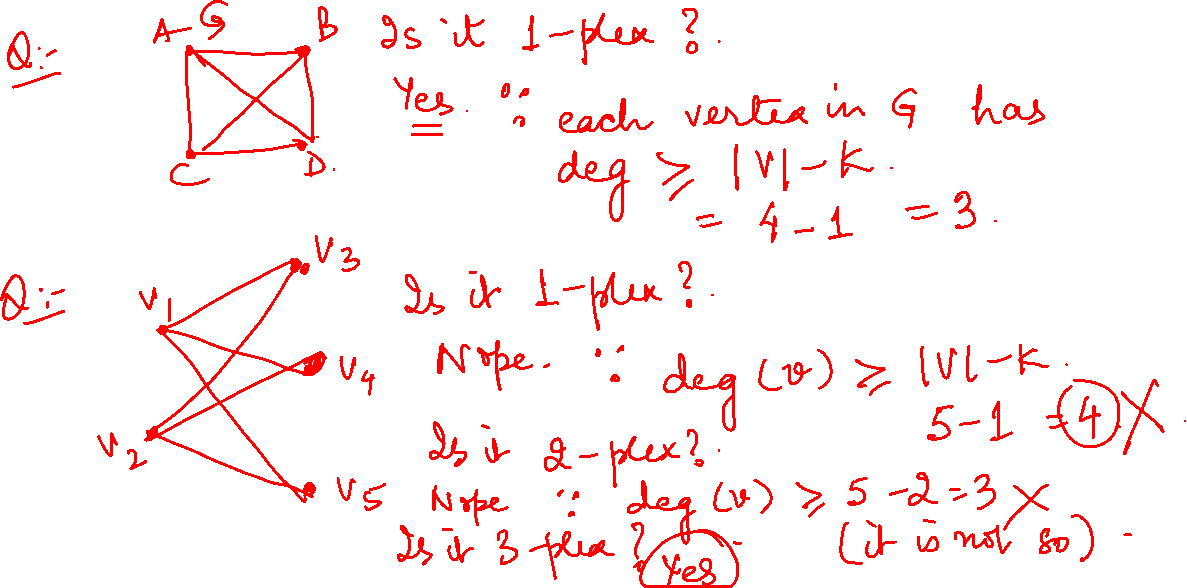 Q:- A G B Is it 1-plex?
Yes. ∵ each vertex in G has
C D. deg ≥ |V|-K.
= 4-1 = 3.
Q:- V1 V3 Is it 1-plex?
V4 Nope. ∵ deg(v) ≥ |V|-K.
5-1 = 4 X
V2 Is it 2-plex?
V5 Nope ∵ deg(v) ≥ 5-2=3 X
Is it 3-plex? Yes (it is not so)